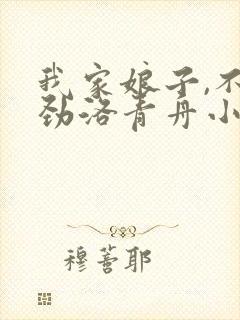 我家娘子,不
劲洛青丹小
穆蓍耶